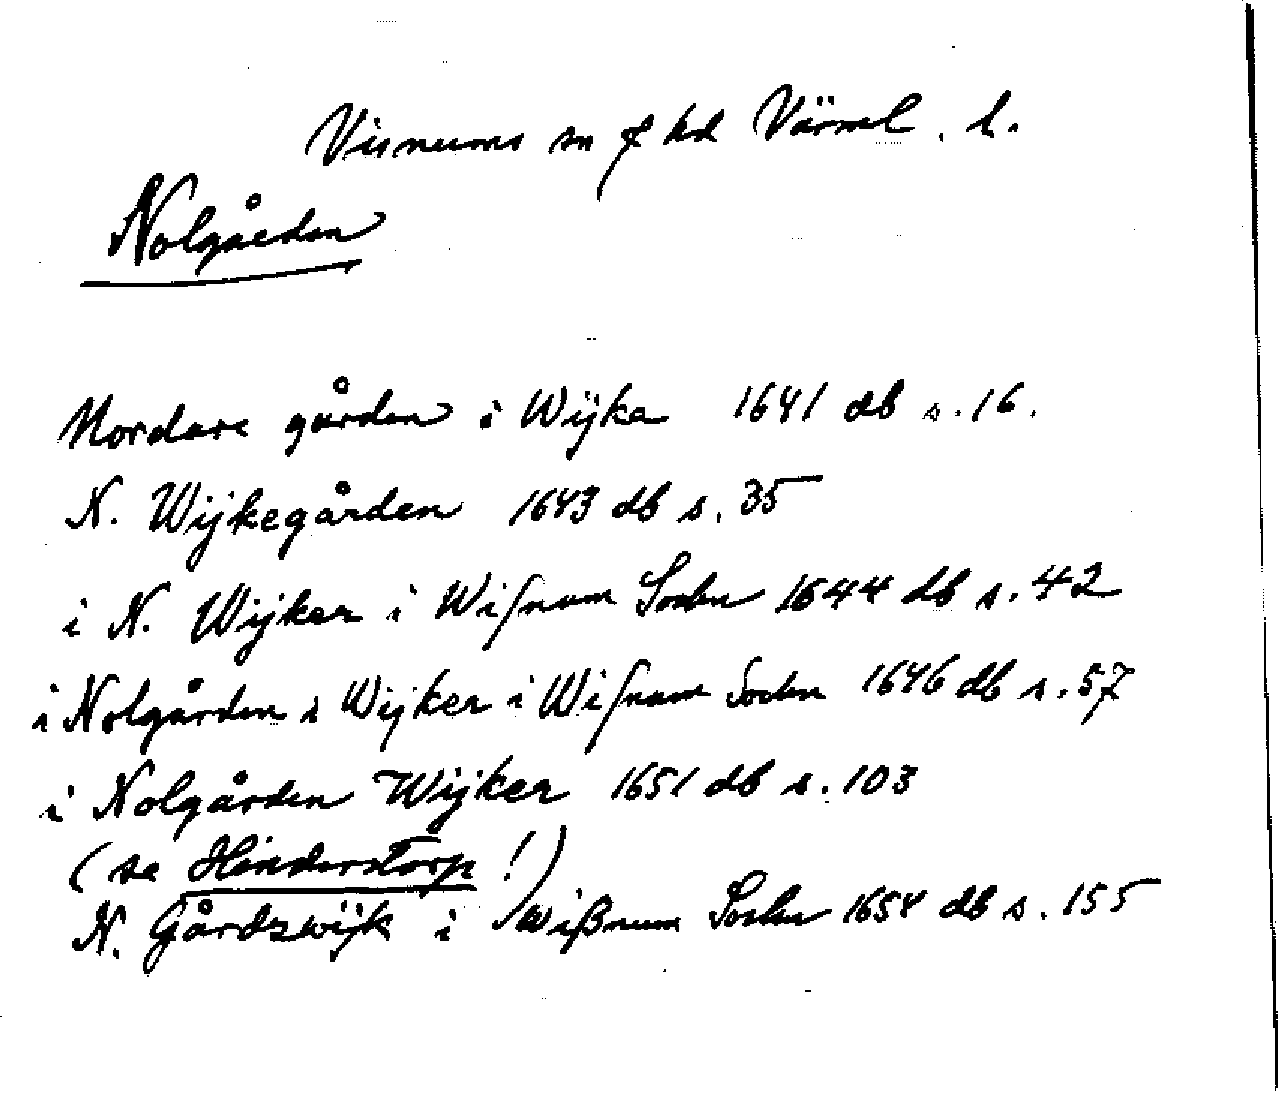 Visnums sn o hd Värml. l.
Nolgården
Nordare gården i Wijka 1641 db s. 16.
N. Wijkegården 1643 db s. 35
i N. Wijker i Wisnum Sochn 1644 db s. 42
i Nolgården i Wijker i Wisnum Sochn 1646 db s. 57
i Nolgården Wijker 1651 db s. 103
(se Hinderstorp!)
N. Gårdzwijk i Wißnum Sochn 1654 db s. 155